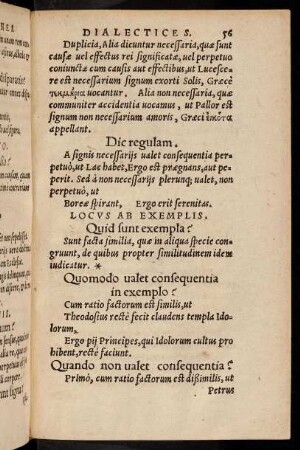 DIALECTICES. 56
Duplicia, Alia dicuntur necessaria, quæ sunt
causæ uel effectus rei significatæ, uel perpetuo
coniuncta cum causis aut effectibus, ut Lucesce-
re est necessarium signum exorti Solis, Græcè
τεκμήρια uocantur. Alia non necessaria, quæ
communiter accidentia uocamus, ut Pallor est
signum non necessarium amoris, Græci εἰκότα
appellant.
Dic regulam.
A signis necessarijs ualet consequentia per-
petuò, ut Lac habet, Ergo est prægnans, aut pe-
perit. Sed à non necessarijs plerunq; ualet, non
perpetuò, ut
Boreas spirant, Ergo erit serenitas.
LOCVS AB EXEMPLIS.
Quid sunt exempla?
Sunt facta similia, quæ in aliqua specie con-
gruunt, de quibus propter similitudinem idem
iudicatur. *
Quomodo ualet consequentia
in exemplo?
Cum ratio factorum est similis, ut
Theodosius rectè fecit claudens templa Ido-
lorum,
Ergo pij Principes, qui Idolorum cultus pro
hibent, rectè faciunt.
Quando non ualet consequentia?
Primò, cum ratio factorum est dißimilis, ut
Petrus